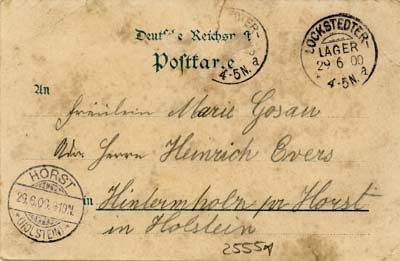 Deutsche Reichspost
Postkarte
LOCKSTEDTER-
LAGER
29 6 00
4-5N. a
4-5N. a
An
Fräulein Marie Gosau
Adr. Herrn Heinrich Evers
HORST
29.6.00
(HOLSTEIN)
in Hintermholz pr Horst
in Holstein
2555